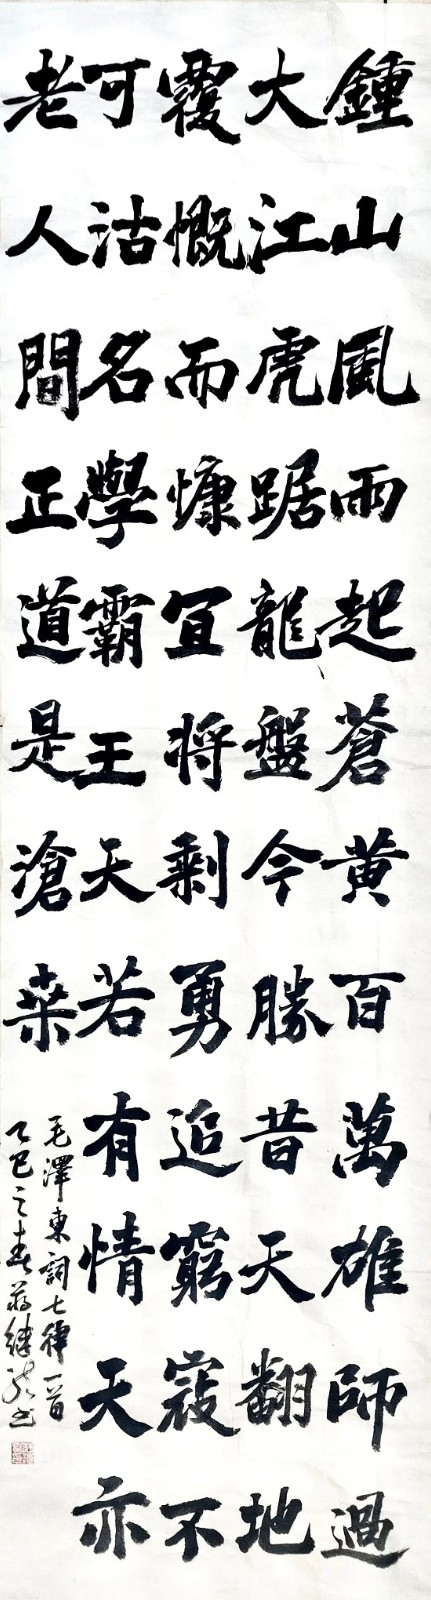 鍾山風雨起蒼黄百萬雄師過
大江虎踞龍盤今勝昔天翻地
覆慨而慷冝将剩勇追窮寇不
可沽名學霸王天若有情天亦
老人間正道是滄桒
毛澤東詞七律一首
乙巳之春蒋继书